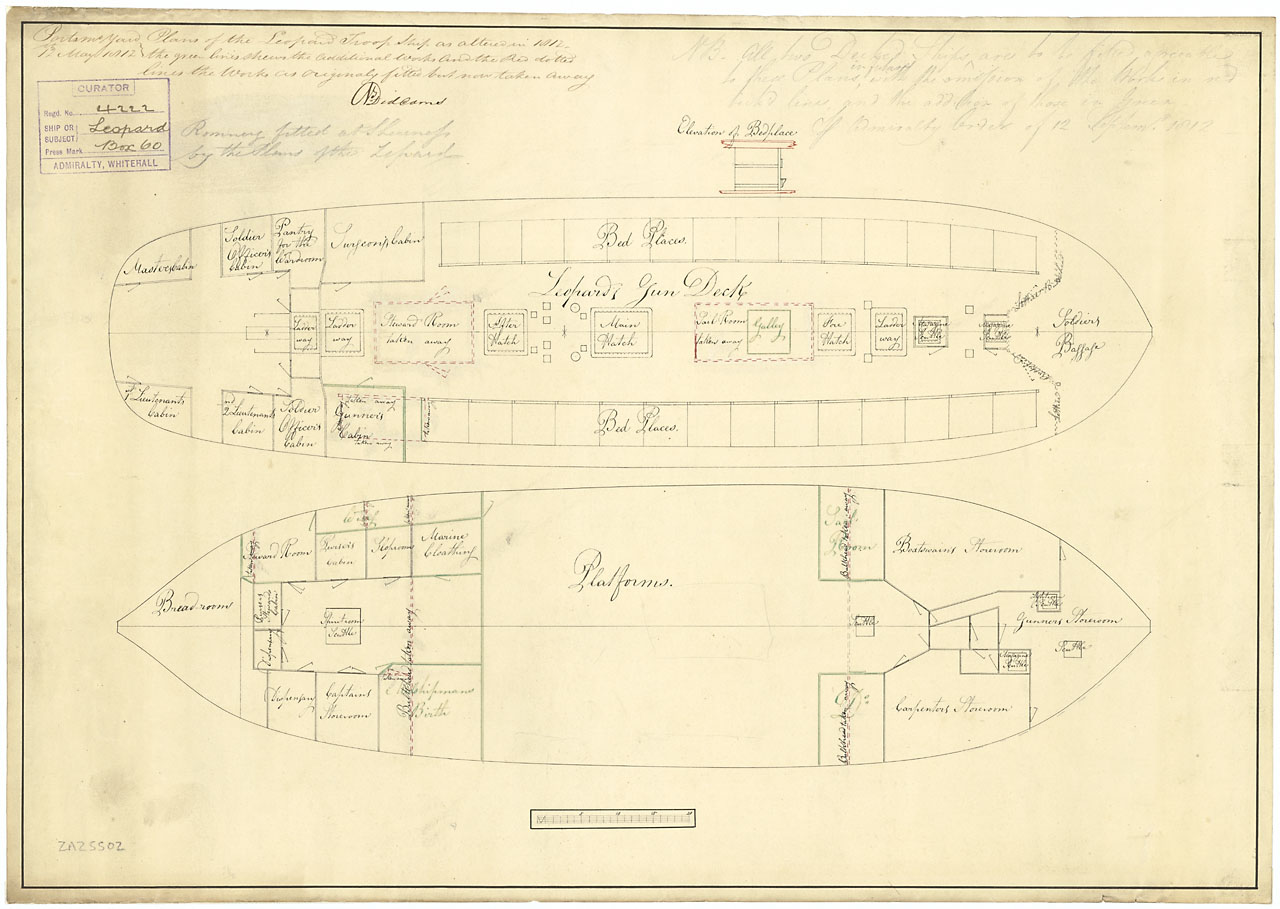 Portsmo. Yard
12 May 1812
Plans of the Leopard Troop Ship as altered in 1812.
the green lines shews the additional Works and the Red dotted
lines the Works as Originaly fitted but now taken away
NDiddams
CURATOR
Regd. No. 4222
SHIP OR SUBJECT Leopard
Press Mark Box 60
ADMIRALTY, WHITEHALL
Romney fitted at Sheerness
by the Plans of the Lepard
NB. All two Decked Ships are to be fitted agreeable
to these Plans, with the omission of the Works in
red lines, and the addition of those in Green
Admiralty Order of 12 Septemr. 1812
Elevation of Bedplace
Masters Cabin
Soldier Officers Cabin
Pantry for the Wardroom
Surgeon's Cabin
Bed Places.
Leopard's Gun Deck
Ladder way
Ladder way
Steward Room taken away
After Hatch
Main Hatch
Sail Room taken away
Galley
Fore Hatch
Ladder way
Magazine Scuttle
Magazine Scuttle
Soldiers Baggage
1st Lieutenants Cabin
2nd Lieutenants Cabin
Soldier Officers Cabin
taken away
Gunner's Cabin
taken away
Bed Places.
Steward Room
Pursers Cabin
Sloproom
Marine Cloathing
Bread-rooms
Spiritroom Scuttle
Dispensary
Dispensary
Captains Storeroom
Midshipmans Birth
Bulkhead taken away
Platforms.
Sail Room
Bulkhead taken away
Boatswains Storeroom
Scuttle
Gunners Storeroom
Scuttle
Magazine Scuttle
Do.
Bulkhead taken away
Carpenters Storeroom
ZAZ5502